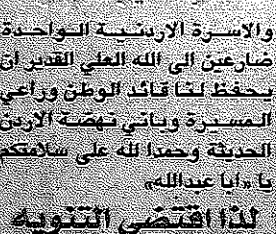 والاسرة الاردنية الواحدة
ضارعين الى الله العلي القدير ان
يحفظ لنا قائد الوطن وراعي
المسيرة وباني نهضة الاردن
الحديثة وحمدا لله على سلامتكم
يا «ابا عبدالله»
لذا اقتضى التنويه